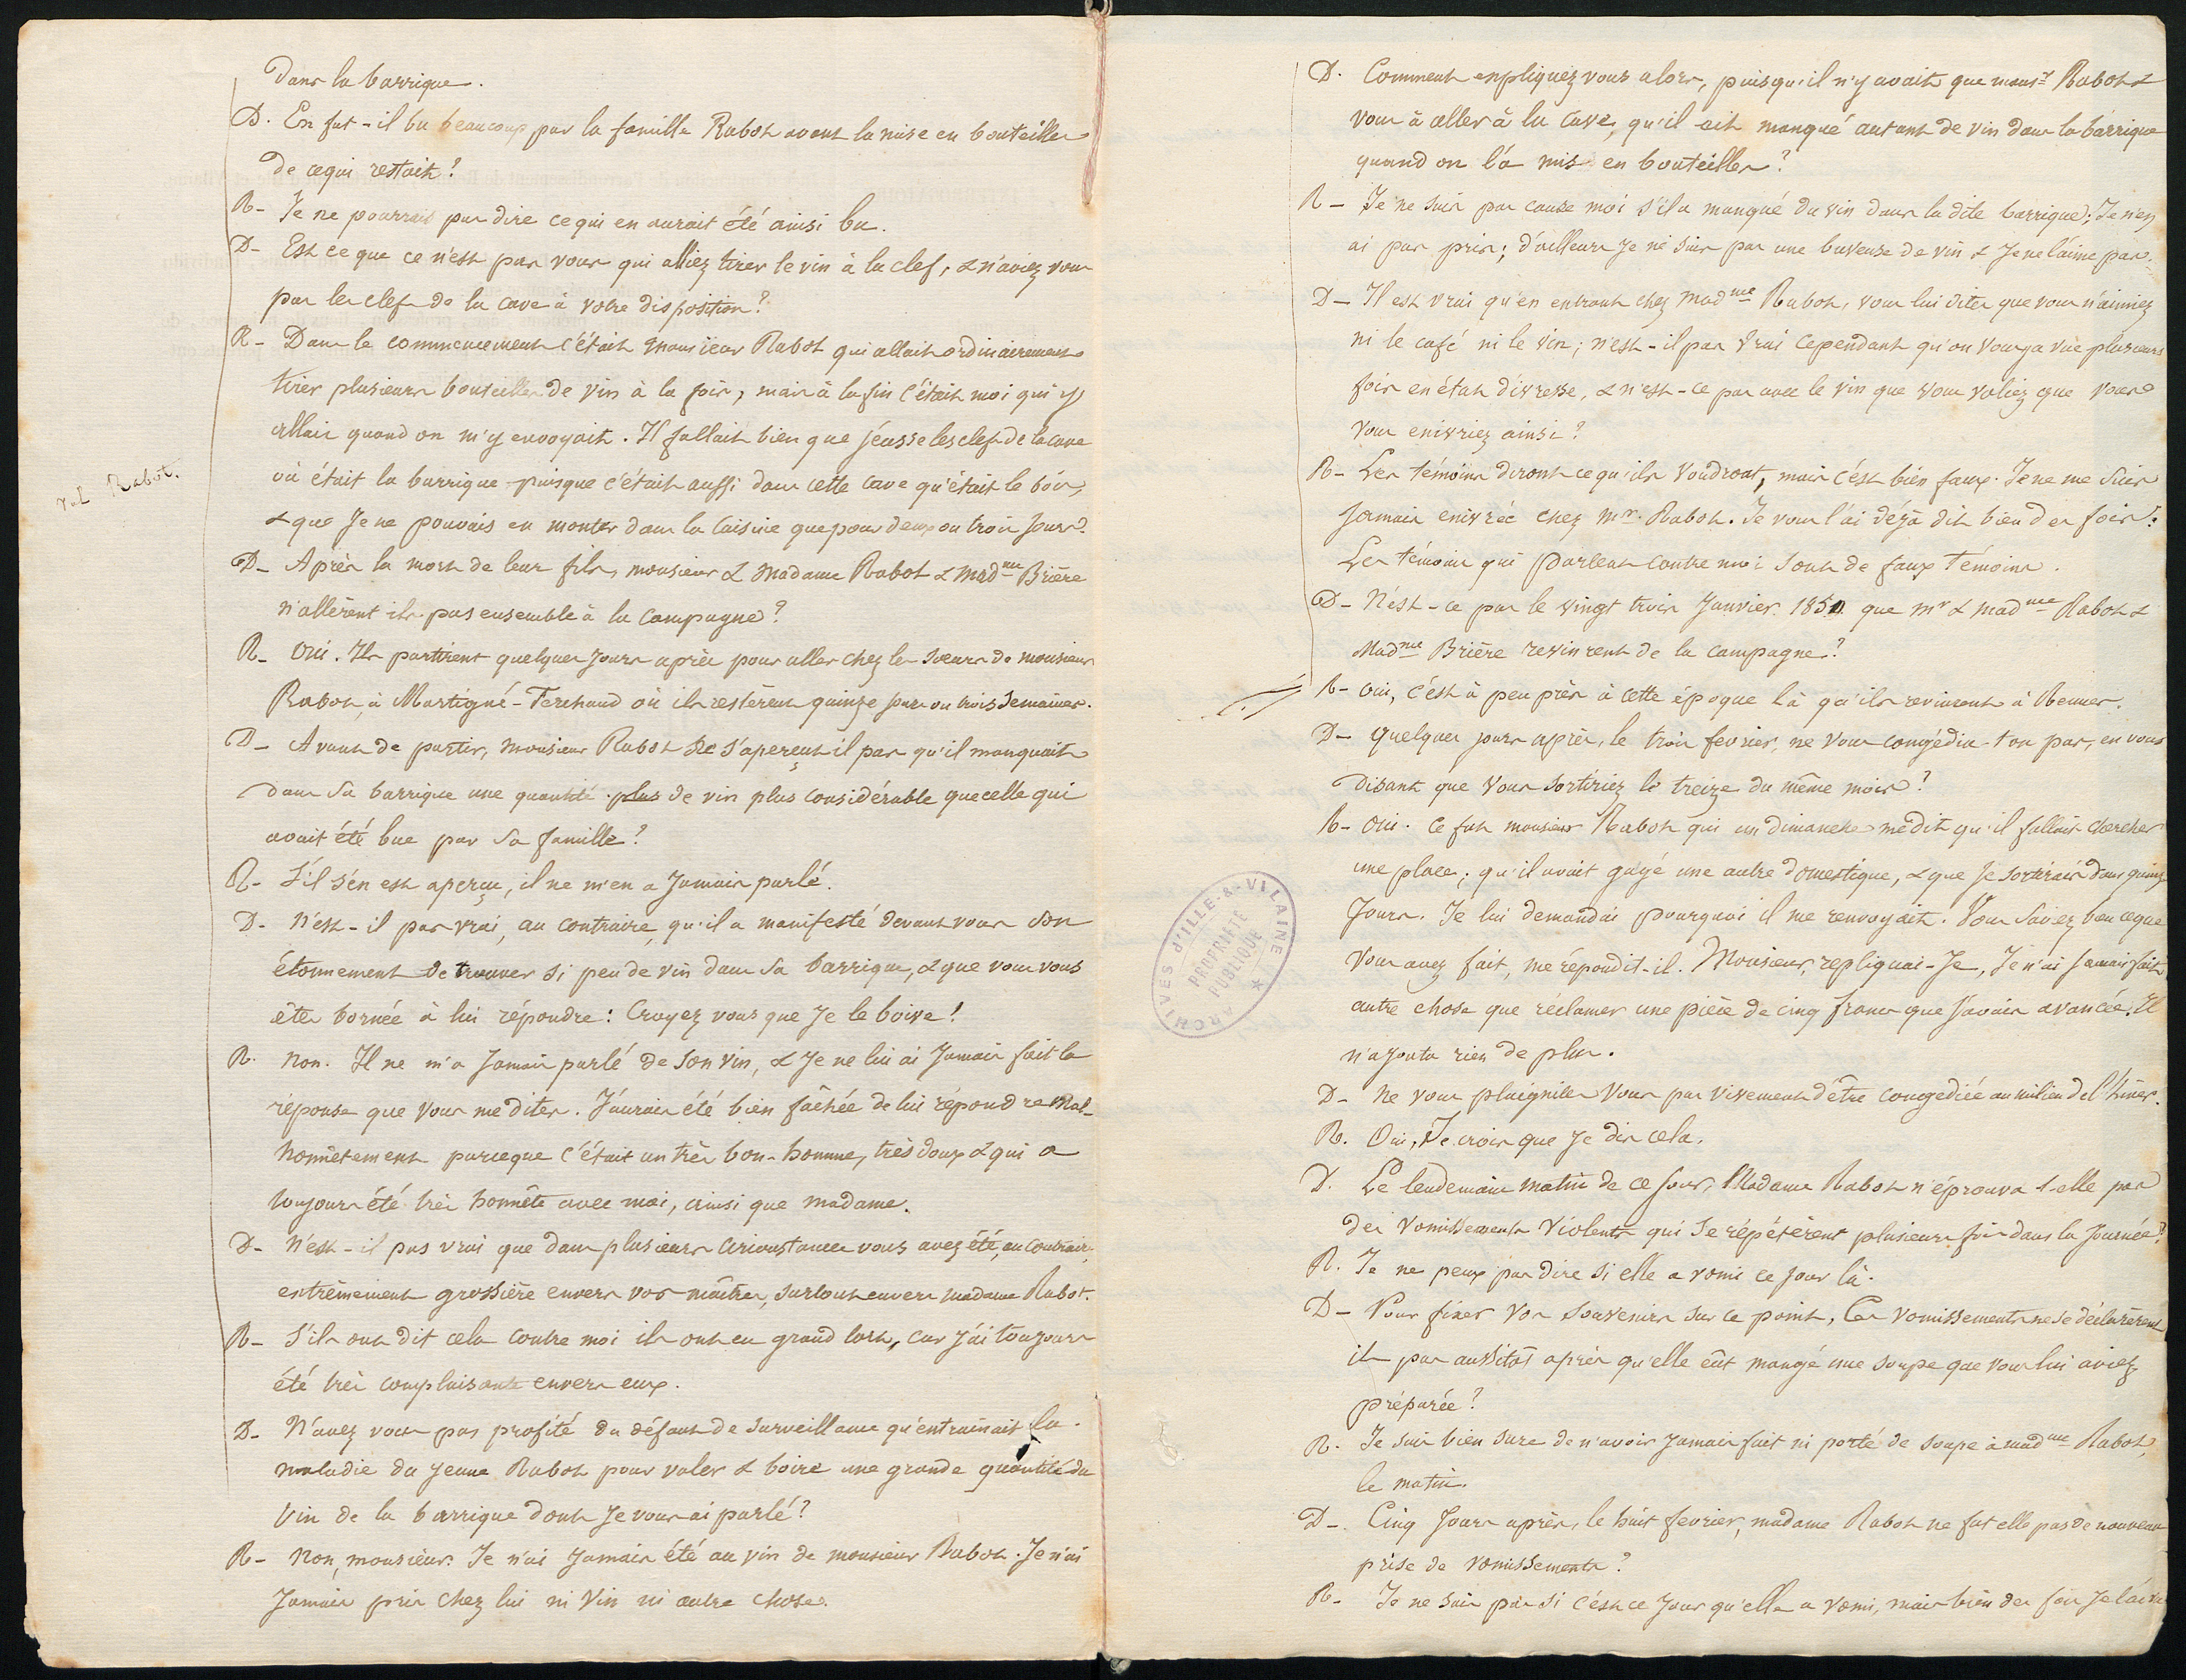 dans la barrique.
D. En fut-il bu beaucoup par la famille Rabot avant la mise en bouteilles
de ce qui restait?
R- Je ne pourrais pas dire ce qui en aurait été ainsi bu.
D- Est ce que ce n'est pas vous qui alliez tirer le vin à la clef, & n'aviez vous
pas les clefs de la cave à votre disposition?
R- Dans le commencement c'était monsieur Rabot qui allait ordinairement
tirer plusieurs bouteilles de vin à la fois, mais à la fin c'était moi qui y
allais quand on m'y envoyait. Il fallait bien que j'eusse les clefs de la cave
où était la barrique puisque c'était aussi dans cette cave qu'était le bois,
& que je ne pouvais en monter dans la cuisine que pour deux ou trois jours.
vol Rabot.
D- Après la mort de leur fils, monsieur & madame Rabot & madme Brière
n'allèrent ils pas ensemble à la campagne?
R- Oui. Ils partirent quelques jours après pour aller chez les soeurs de monsieur
Rabot, à Martigné-Ferchaud où ils restèrent quinze jours ou trois semaines.
D- Avant de partir, monsieur Rabot ne s'aperçut il pas qu'il manquait
dans sa barrique une quantité plus de vin plus considérable que celle qui
avait été bue par sa famille?
R- S'il s'en est aperçu, il ne m'en a jamais parlé.
D- N'est-il pas vrai, au contraire, qu'il a manifesté devant vous son
étonnement de trouver si peu de vin dans sa barrique, & que vous vous
êtes bornée à lui répondre: Croyez vous que je le boive!
R. Non. Il ne m'a jamais parlé de son vin, & je ne lui ai jamais fait la
réponse que vous me dites. J'aurais été bien fâchée de lui répondre mal-
honnêtement parceque c'était un très bon-homme, très doux & qui a
toujours été très honnête avec moi, ainsi que madame.
D- N'est-il pas vrai que dans plusieurs circonstances vous avez été, au contraire,
extrêmement grossière envers vos maîtres, surtout envers madame Rabot.
R- S'ils ont dit cela contre moi ils ont eu grand tort, car j'ai toujours
été très complaisante envers eux.
D- N'avez vous pas profité du défaut de surveillance qu'entrainait la
maladie du jeune Rabot pour voler & boire une grande quantité du
vin de la barrique dont je vous ai parlé?
R- Non, monsieur. Je n'ai jamais été au vin de monsieur Rabot. Je n'ai
jamais pris chez lui ni vin ni autre chose.
D. Comment expliquez vous alors, puisqu'il n'y avait que monsr Rabot &
vous à aller à la cave, qu'il ait manqué autant de vin dans la barrique
quand on l'a mis en bouteilles?
R- Je ne suis pas cause moi s'il a manqué du vin dans la dite barrique; Je n'en
ai pas pris; d'ailleurs je ne suis pas une buveuse de vin & je ne l'aime pas.
D- Il est vrai qu'en entrant chez madme Rabot, vous lui dites que vous n'aimiez
ni le café ni le vin; n'est-il pas vrai cependant qu'on vous y a vue plusieurs
fois en état d'ivresse, & n'est-ce pas avec le vin que vous voliez que vous
vous enivriez ainsi?
R- Les témoins diront ce qu'ils voudront, mais c'est bien faux. Je ne me suis
jamais enivrée chez Mr. Rabot. Je vous l'ai déjà dit bien des fois:
Les témoins qui parlent contre moi sont de faux témoins.
D- N'est-ce pas le vingt trois janvier 1850 que mr & madme Rabot &
Madme Brière revinrent de la campagne?
R- Oui, c'est à peu près à cette époque là qu'ils revinrent à Rennes.
D- Quelques jours après, le trois fevrier, ne vous congédia-t on pas, en vous
disant que vous sortiriez le treize du même mois?
R- Oui. Ce fut monsieur Rabot qui un dimanche me dit qu'il fallait chercher
une place; qu'il avait gagé une autre domestique, & que je sortirais dans quinze
jours. Je lui demandai pourquoi il me renvoyait. Vous savez bien ce que
vous avez fait, me répondit-il. Monsieur, repliquai-je, Je n'ai jamais fait
autre chose que réclamer une pièce de cinq francs que j'avais avancée. Il
n'ajouta rien de plus.
D- Ne vous plaignites vous pas vivement d'être congédiée au milieu de l'hiver.
R. Oui, Je crois que je dis cela.
D. Le lendemain matin de ce jour, Madame Rabot n'éprouva t-elle pas
des vomissements violents qui se répétèrent plusieurs fois dans la journée?
R. Je ne peux pas dire si elle a vomi ce jour là.
D- Pour fixer vos souvenirs sur ce point, Ces vomissements ne se déclarèrent
ils pas aussitôt après qu'elle eût mangé une soupe que vous lui aviez
préparée?
R. Je suis bien sure de n'avoir jamais fait ni porté de soupe à madme Rabot,
le matin.
D-. Cinq jours après, le huit fevrier, madame Rabot ne fut elle pas de nouveau
prise de vomissements?
R- Je ne sais pas si c'est ce jour qu'elle a vomi, mais bien des fois je l'ai vu
ARCHIVES D'ILLE-&-VILAINE
PROPRIÉTÉ
PUBLIQUE